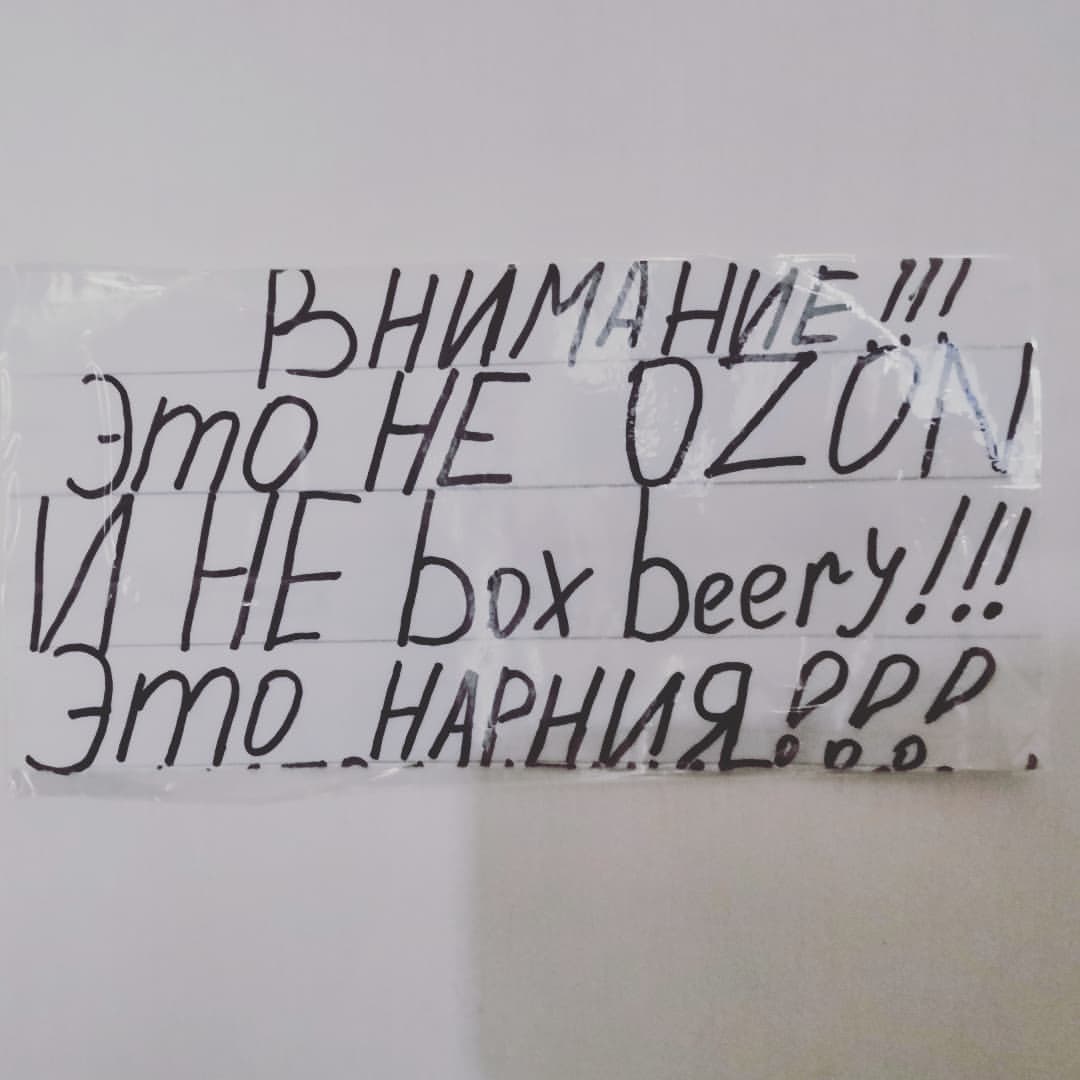 ВНИМАНИЕ!!!
Это НЕ OZON
И НЕ box beery!!!
Это НАРНИЯ!!!